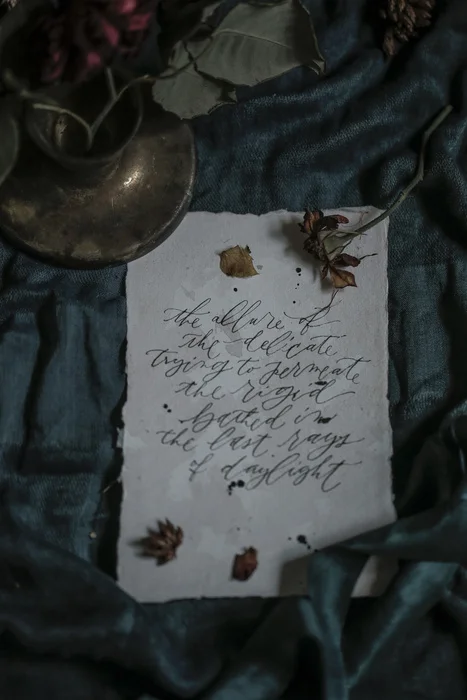 the allure of
the delicate
trying to permeate
the rigid
bathed in
the last rays
of daylight